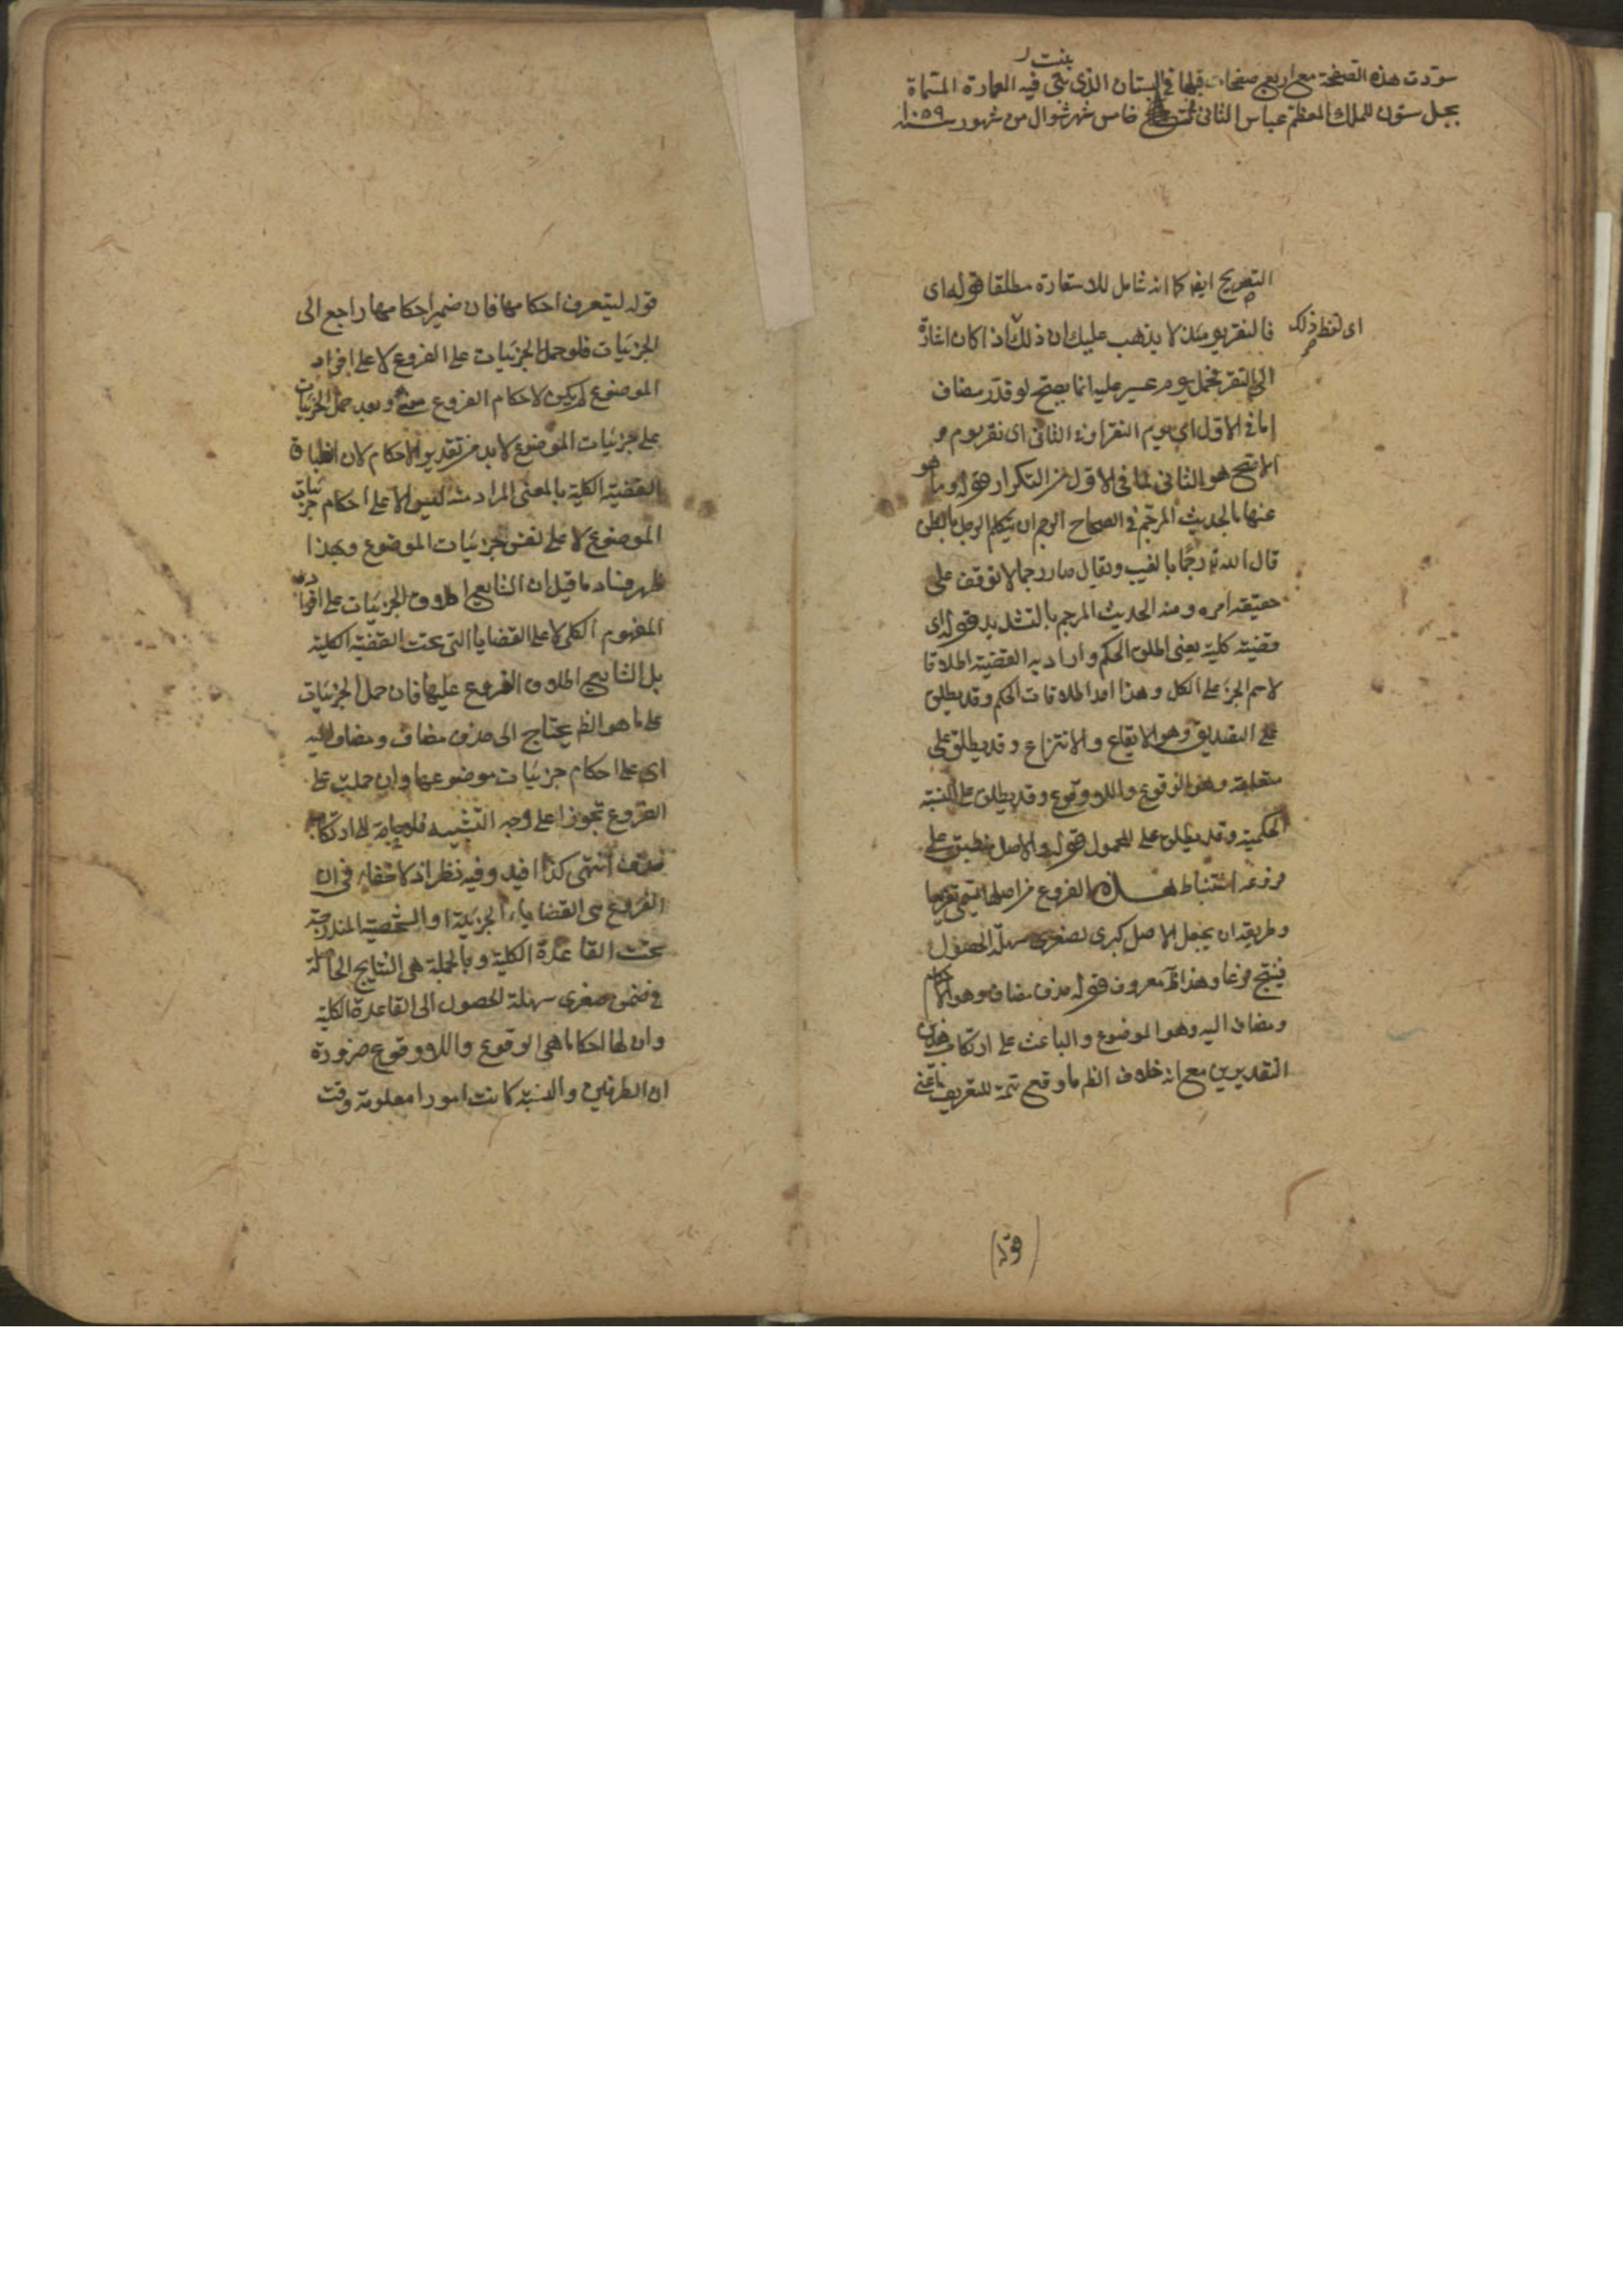 سوّدت هذه الصفحة مع اربع صفحات قبلها في البستان الذي بنى فيه العمارة المسماة
بنت
بجبل ستون للملك المعظم عباس الثاني خامس شهر شوال من شهور سنة ١٠٥٩
التصريح ايضا كما انه شامل للاستعارة مطلقا قوله اى
اى لفظ ذلك
فالنقر يومئذ لا يذهب عليك ان ذلك اذا كان اشارة
الى النقر فحمل يوم عسير عليه انما يصح لو قدّر مضاف
اما في الاول اى يوم النقر او في الثانى اى نقر يوم و
الاصح هو الثانى لما فى الاول من التكرار قوله وما هو
عنها بالحديث المرجّم في الصحاح الرجم ان يتكلم الرجل بالظن
قال الله تع رجما بالغيب ويقال صار رجما لا توقف على
حقيقة امره ومنه الحديث المرجم بالتشديد قوله اى
قضية كلية يعنى اطلق الحكم واراد به القضية اطلاقا
لاسم الجزء على الكل وهذا احد اطلاقات الحكم وقد يطلق
على التصديق وهو الايقاع والانتزاع وقد يطلق على
متعلقه وهو الوقوع واللاوقوع وقد يطلق على النسبة
الحكمية وقد يطلق على المحمول قوله والاصل منطبق على
فروعه استنباط هذه الفروع من اصلها يسمى تفريعا
وطريقه ان يجعل الاصل كبرى لصغرى سهلة الحصول
فينتج فرعا وهذا معروف قوله حذف مضاف وهو الاحكام
ومضاف اليه وهو الموضوع والباعث على ارتكاب هذين
التقديرين مع انه خلاف الظم ما وقع تتمة للتعريف
(قوله)
قوله ليتعرف احكامها فان ضمير احكامها راجع الى
الجزئيات فلو حمل الجزئيات على الفروع لا على افراد
الموضوع لم يكن لاحكام الفروع معنى وبعد حمل الجزئيات
على جزئيات الموضوع لا بد من تقدير الاحكام لان انطباق
القضية الكلية بالمعنى المراد منه ليس الا على احكام جزئيات
الموضوع لا على نفس جزئيات الموضوع وبهذا
ظهر فساد ما قيل ان الشايع اطلاق الجزئيات على افراد
المفهوم الكلى لا على القضايا التى تحت القضية الكلية
بل الشايع اطلاق الفروع عليها فان حمل الجزئيات
على ما هو الظم يحتاج الى حذف مضاف ومضاف اليه
اى على احكام جزئيات موضوعها وان حملت على
الفروع تجوزا على وجه التشبيه فلا حاجة الى ارتكاب
حذف انتهى كذا افيد وفيه نظر اذ لا خفاء فى ان
الفروع هى القضايا الجزئية او الشخصية المندرجة
تحت القاعدة الكلية وبالجملة هى النتايج الحاصلة
فى ضمن صغرى سهلة الحصول الى القاعدة الكلية
وان لها احكاما هى الوقوع واللاوقوع ضرورة
ان الطرفين والنسبة كانت امورا معلومة وقت